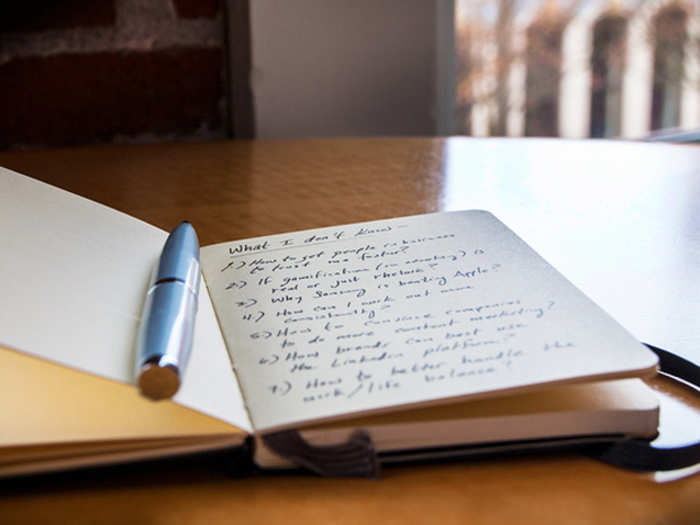 What I don't know —
1.) How to get people in business
to trust me faster?
2.) If gamification (in advertising) is
real or just rhetoric?
3.) Why Samsung is beating Apple?
4.) How can I work out more
consistently?
5.) How to convince companies
to do more content marketing?
6.) How brands can best use
the LinkedIn platform?
7.) How to better handle the
work/life balance?